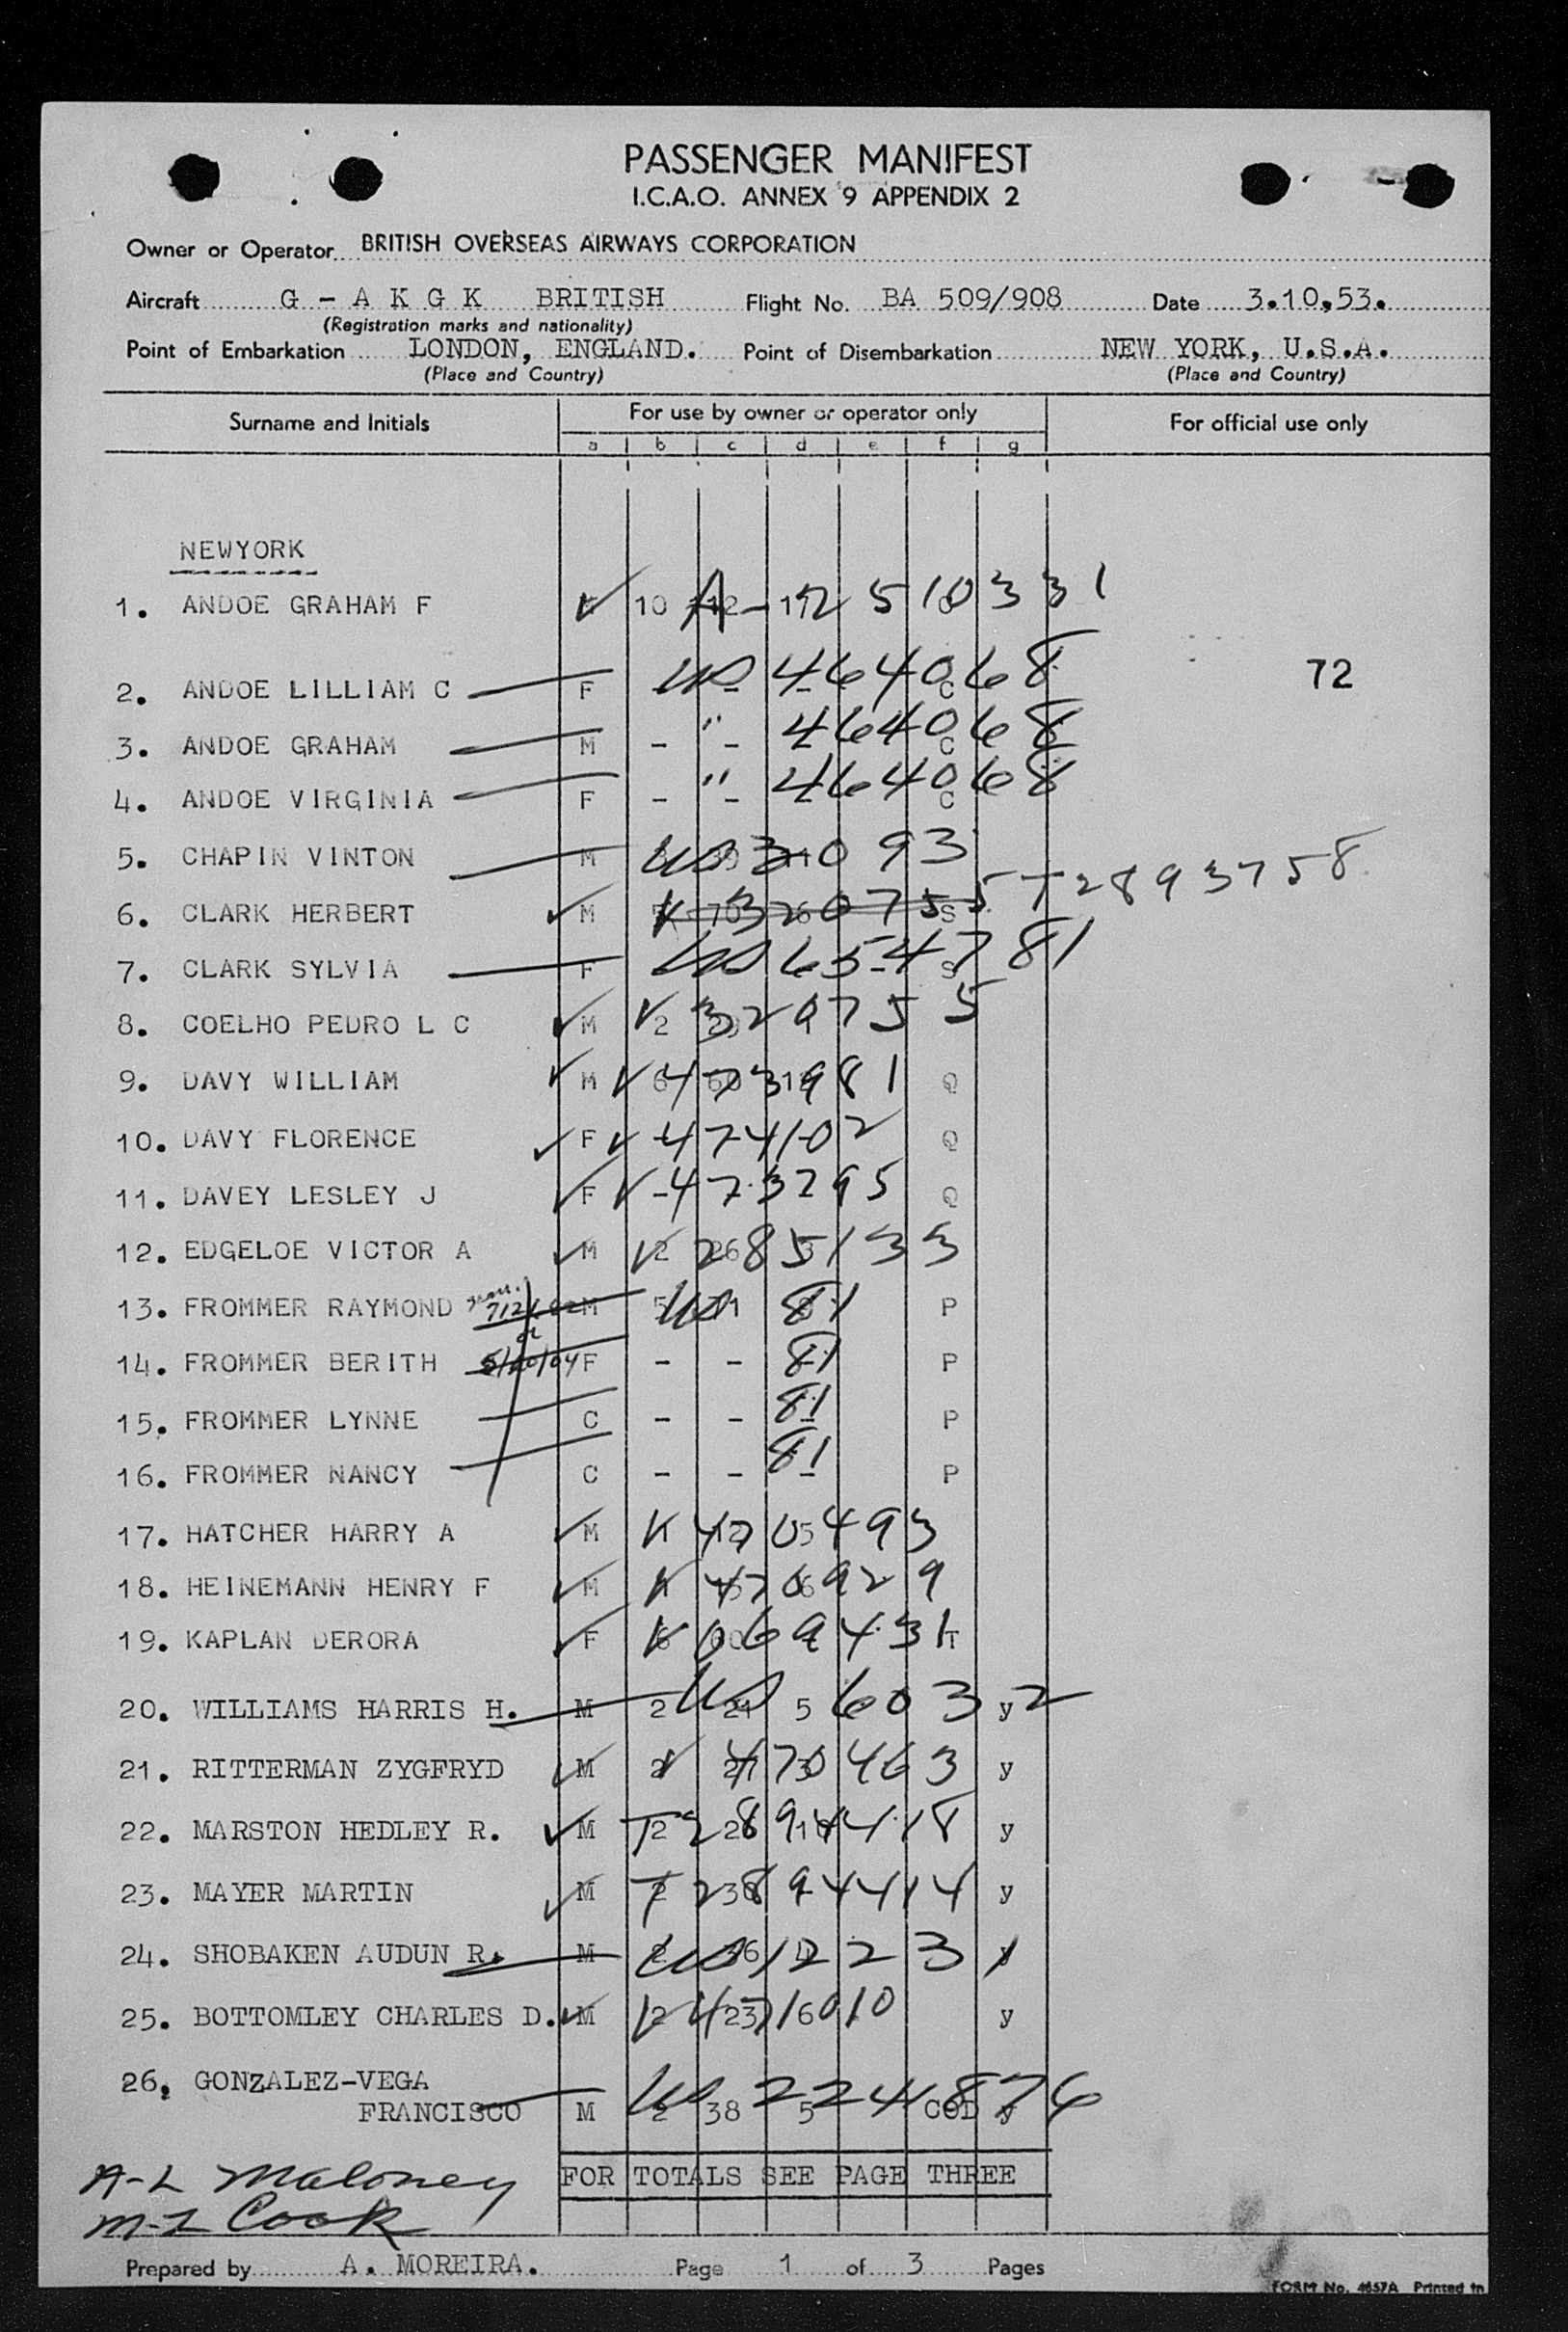 PASSENGER MANIFEST
I.C.A.O. ANNEX 9 APPENDIX 2
Owner or Operator BRITISH OVERSEAS AIRWAYS CORPORATION
Aircraft G - A K G K BRITISH Flight No. BA 509/908 Date 3.10.53.
(Registration marks and nationality)
Point of Embarkation LONDON, ENGLAND. Point of Disembarkation NEW YORK, U.S.A.
(Place and Country) (Place and Country)
Surname and Initials For use by owner or operator only For official use only
a b c d e f g
NEWYORK
1. ANDOE GRAHAM F 10 A-12 510331
72
2. ANDOE LILLIAM C F US 464068 C
3. ANDOE GRAHAM M - " - 464068 C
4. ANDOE VIRGINIA F - " - 464068 C
5. CHAPIN VINTON M US 3093
6. CLARK HERBERT M V 320755 S T2893758
7. CLARK SYLVIA F US 654781 S
8. COELHO PEDRO L C M V 2 320755
9. DAVY WILLIAM M V 473981 Q
10. DAVY FLORENCE F V 474102 Q
11. DAVEY LESLEY J F V 473295 Q
12. EDGELOE VICTOR A M V 2 285133
13. FROMMER RAYMOND M 5 US 81 P
14. FROMMER BERITH 5/20/04 F - - 81 P
15. FROMMER LYNNE C - - 81 P
16. FROMMER NANCY C - - 81 P
17. HATCHER HARRY A M V 4705493
18. HEINEMANN HENRY F M V 4706929
19. KAPLAN DERORA F V 069431 T
20. WILLIAMS HARRIS H. M 2 US 21 5 6032 y
21. RITTERMAN ZYGFRYD M V 470463 y
22. MARSTON HEDLEY R. M T2894418 y
23. MAYER MARTIN M T2894414 y
24. SHOBAKEN AUDUN R. M US 12231
25. BOTTOMLEY CHARLES D. M V 2 4716010 y
26, GONZALEZ-VEGA
FRANCISCO M 2 US 38 5 224876 COD y
A-L Maloney
M-L Cook
FOR TOTALS SEE PAGE THREE
Prepared by A. MOREIRA. Page 1 of 3 Pages
FORM No. 4657A Printed in